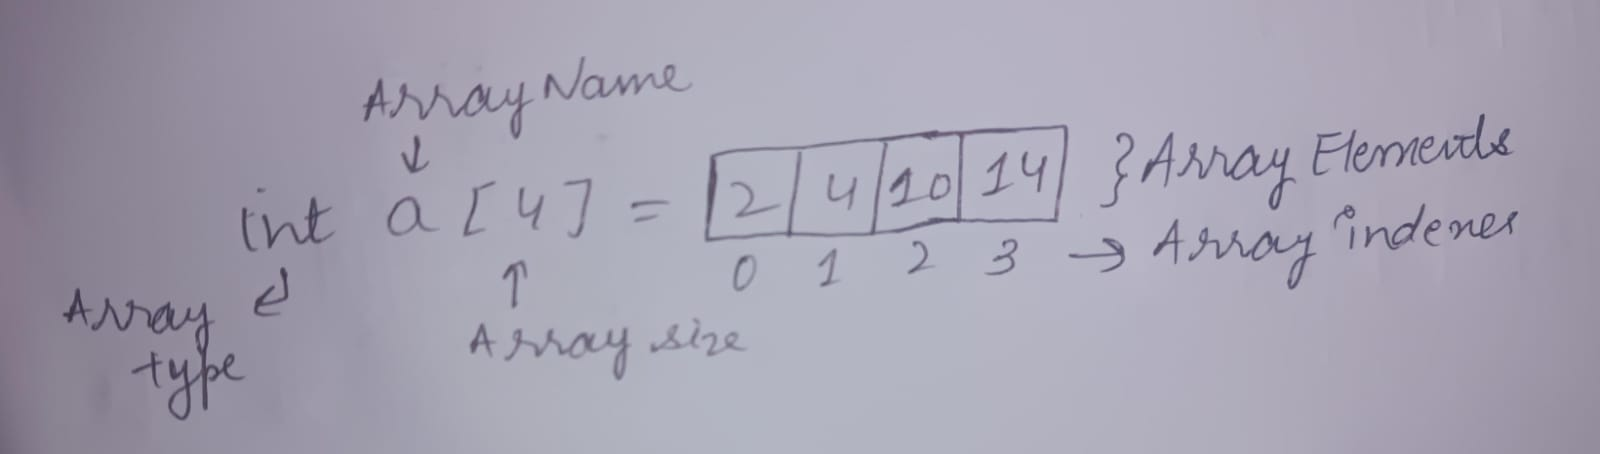 Array Name
int a [4] = 2 4 10 14 } Array Elements
0 1 2 3 → Array indexes
Array type
Array size